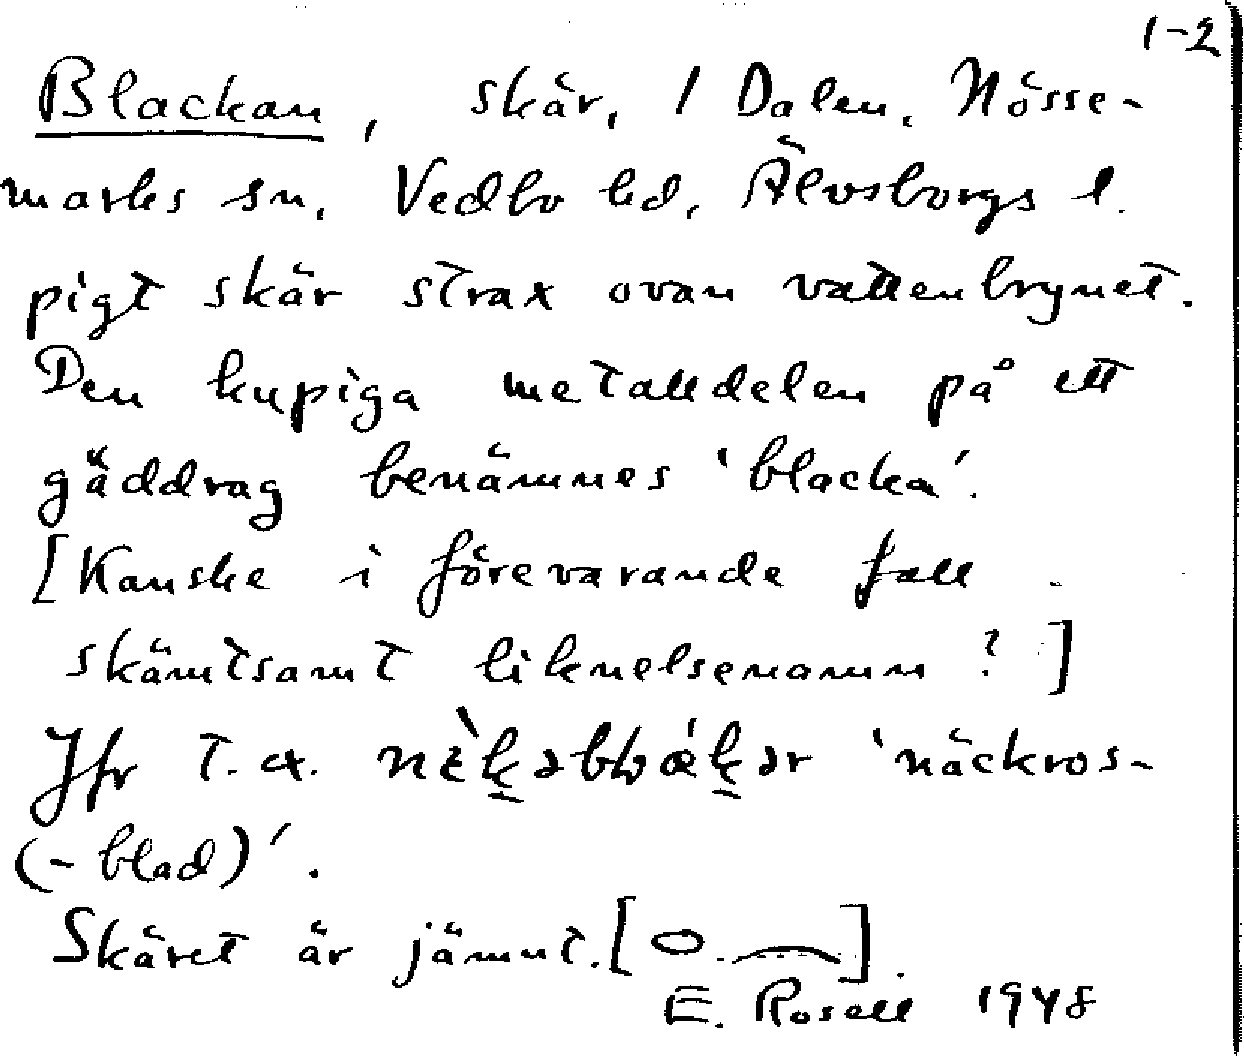 1-2
Blackan, skär, 1 Dalen, Nösse-
marks sn, Vedbo hd, Älvsborgs l.
pigt skär strax ovan vattenbrynet.
Den kupiga metalldelen på ett
gäddrag benämnes 'blacka'.
[Kanske i förevarande fall
skämtsamt liknelsenamn?]
Jfr t.ex. 'näckros-
(-blad)'.
Skäret är jämnt. [ ]
E. Rosell 1948